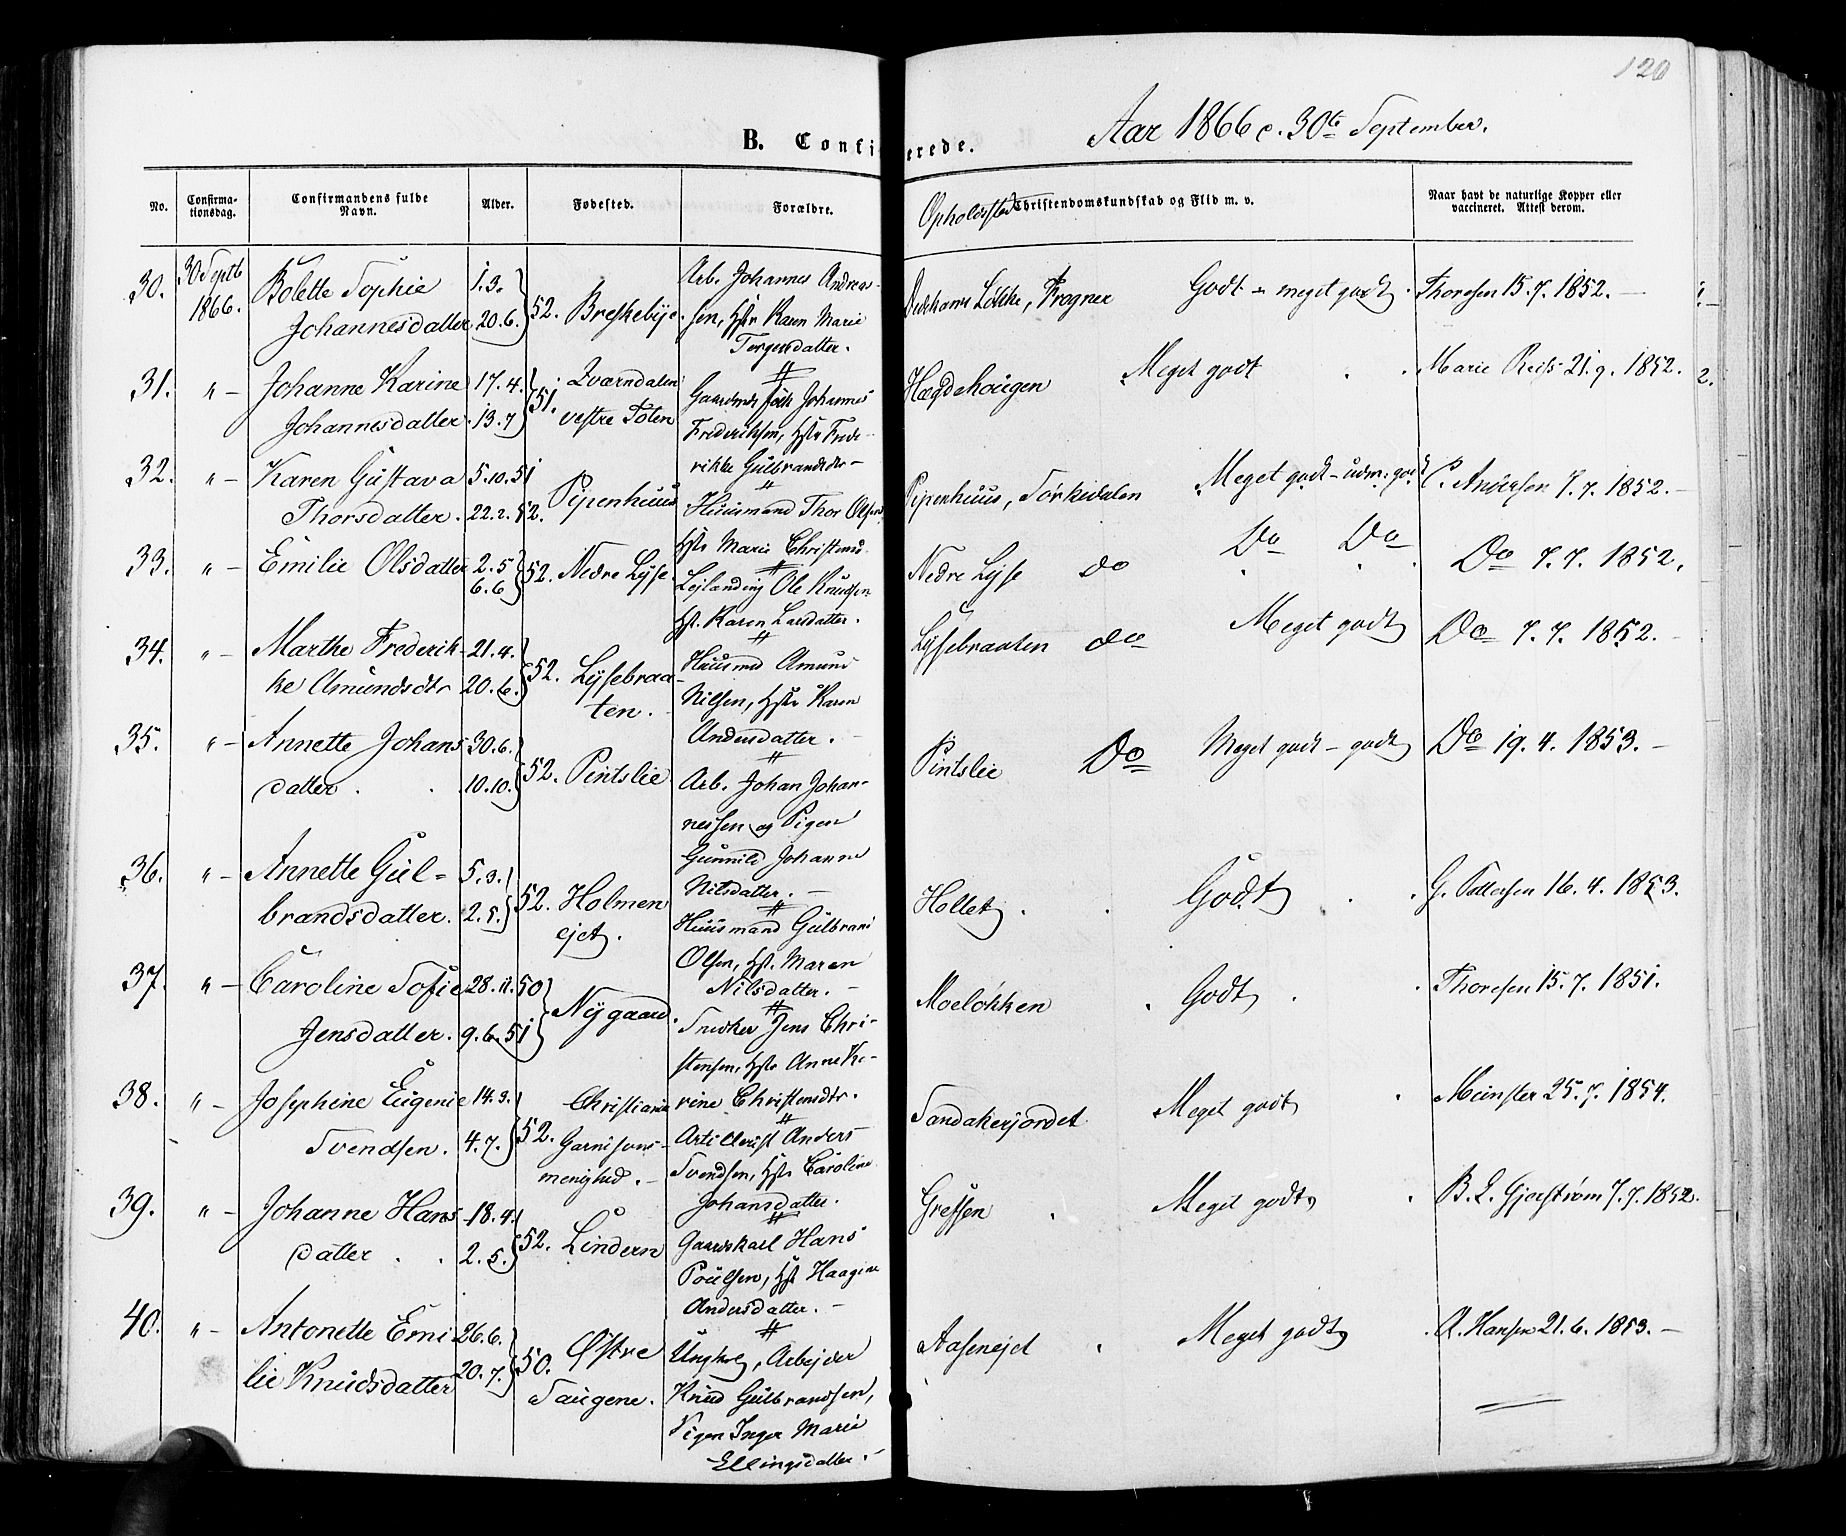 120
Aar 1866 c. 30te September.
B. Confi erede.
No.
Confirma-
tionsdag.
Confirmandens fulde
Navn.
Alder.
Fødested.
Forældre.
Opholdssted
Christendomskundskab og Flid m. v.
Naar havt de naturlige Kopper eller
vaccineret. Attest derom.
30. 30 Septb Bolette Sophie 1.3. Arb. Johannes Andreas-
1866. Johannesdatter 20.6. 52. Breskebye. sen, Hstr Karen Marie
Torgersdatter.
Frogner Godt - meget godt. Thoresen 15.7.1852. -
31. " - Johanne Karine 17.4. 51. Qværndalen
Johannesdatter 13.7 vestre Toten Johannes
Frederiksen, Hstr Frede-
rikke Gulbrandsdtr -
Hægdehougen Meget godt Marie Reiss 21.9.1852.
32. " - Karen Gustava 5.10.51 Pipenhuus Huusmand Thor Olsen,
Thorsdatter. 22.2.52. Hstr Marie
Pipenhuus, Sørkedalen Meget godt - udm. godt C. Andersen 7.7.1852. -
33. " - Emilie Olsdatter 2.5 52. Nedre Lyse. Leilænding Ole Knudsen
6.6 Hst. Karen Larsdatter.
Nedre Lyse do Do Do Do 7.7.1852.
34. " - Marthe Frederik- 21.4. 52. Lysebraa- Huusmd Amund
ke Amundsdtr 20.6. ten. Nilsen, Hstr Karen
Andersdatter. -
Lysebraaten do Meget godt Do 7.7.1852. -
35. " - Annette Johans 30.6. 52. Pintslie Arb. Johan Johan-
datter. 10.10. nessen og Pigen
Gunnild Johanne
Nilsdatter. -
Pintslie Do Meget godt - godt Do 19.4.1853. -
36. " - Annette Gul- 5.3. 52. Holmen Huusmand Gulbrand
brandsdatter. 2.5. ejet. Olsen, Hst. Maren
Nilsdatter. -
Hollet. Godt G. Pettersen 16.4.1853.
37. " - Caroline Sofie 28.11.50 Nygaard. Snedker Jens Chri-
Jensdatter. 9.6.51 stensen, Hstr Anne Ka-
rine Christensdtr.
Moeløkken Godt Thoresen 15.7.1851.
38. " - Josephine Eugenie 14.3. 52. Christiania Artillerist Anders
Svendsen. 4.7. Garnisons- Svendsen, Hstr Caroline
menighed. - Johansdatter.
Sandakerjordet Meget godt Münster 25.7.1854.
39. " - Johanne Hans 18.4. 52. Lindern Gaardskarl Hans
datter. 2.5. Poulsen, Hst Haagine
Andersdatter. -
Grefsen Meget godt B. L. Gjerstrøm 7.7.1852.
40. " - Antonette Emi 26.6. 50. Østre Ungkarl, Arbejder
lie Knudsdatter 20.7. Saugene. Knud Gulbrandsen,
Pigen Inger Marie
Ellingsdatter.
Aasenejet Meget godt A. Hansen 21.6.1853. -